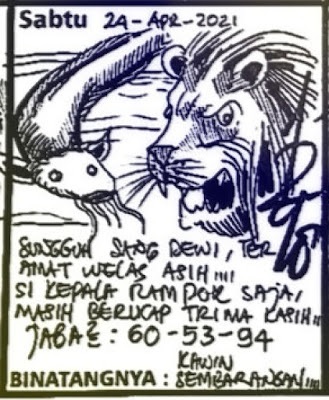 Sabtu 24-APR-2021
SUNGGUH SANG DEWI, TER
AMAT WELAS ASIH,,,,
SI KEPALA RAMPOK SAJA,
MASIH BERUCAP TRIMA KASIH,,,,
JABAE : 60-53-94
KAWIN
BINATANGNYA : SEMBARANGAN,,,,